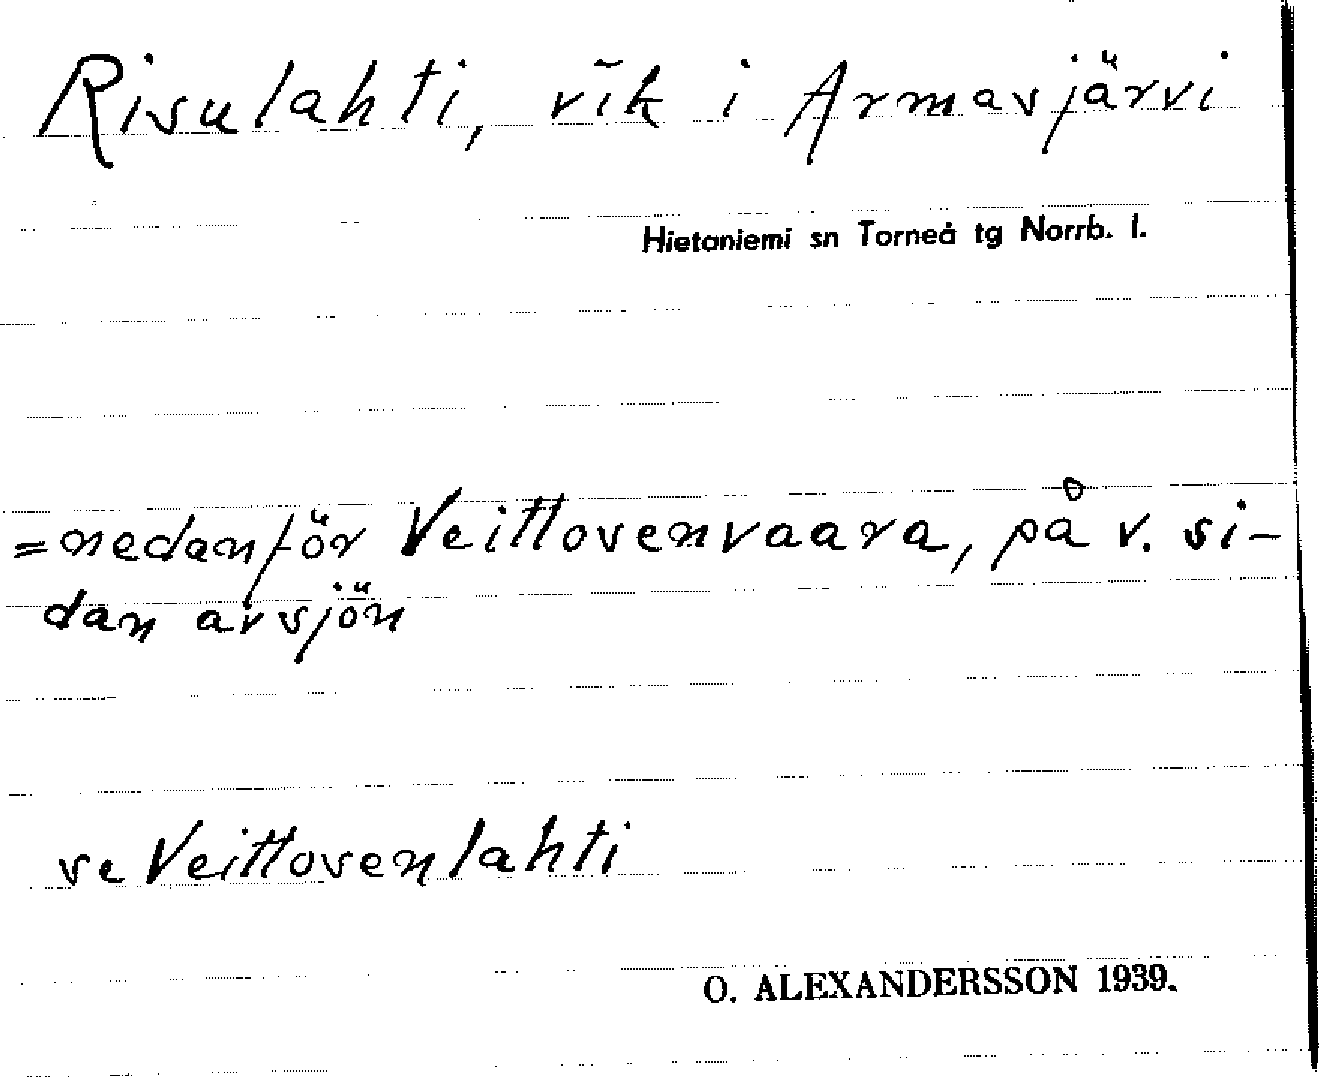 Risulahti, vik i Armasjärvi
Hietaniemi sn Torneå tg Norrb. l.
=nedanför Veittovenvaara, på v. si-
dan av sjön
se Veittovenlahti
O. ALEXANDERSSON 1939.